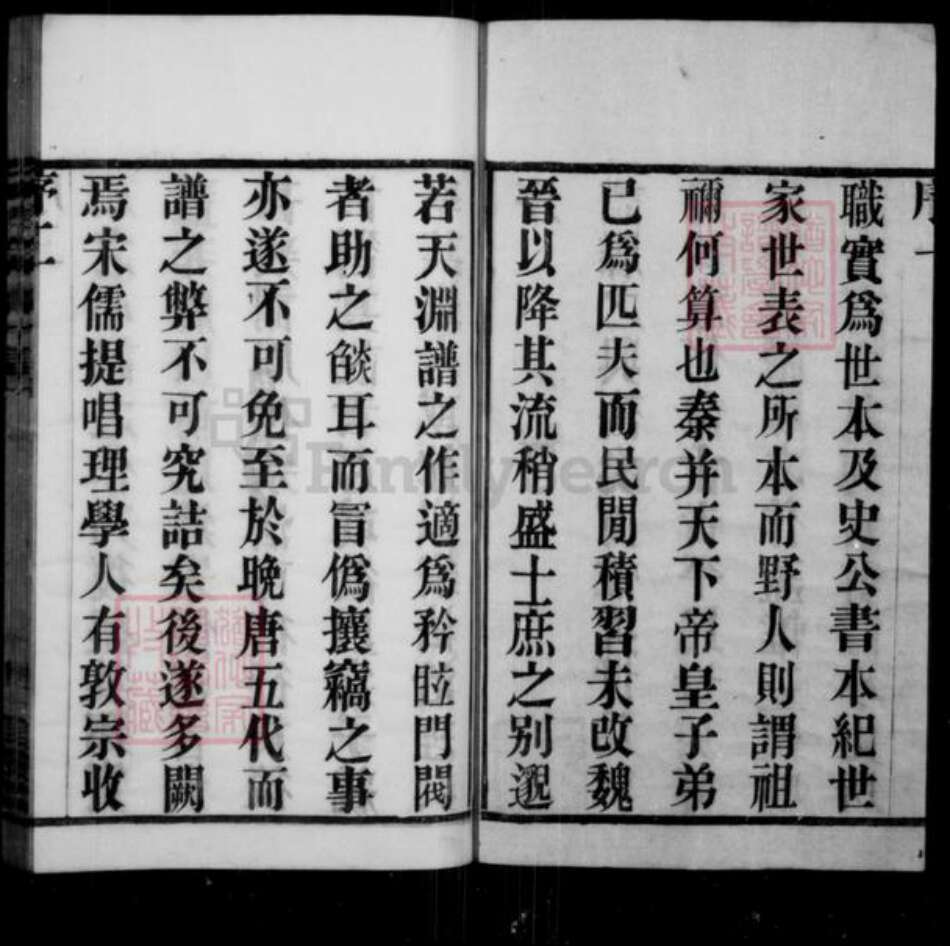 職實爲世本及史公書本紀世
家世表之所本而野人則謂祖
禰何算也秦并天下帝皇子弟
已爲匹夫而民閒積習未改魏
晉以降其流稍盛士庶之别邈
若天淵譜之作適爲矜眩門閥
者助之燄耳而冒僞攘竊之事
亦遂不可免至於晚唐五代而
譜之弊不可究詰矣後遂多闕
焉宋儒提唱理學人有敦宗收
序二